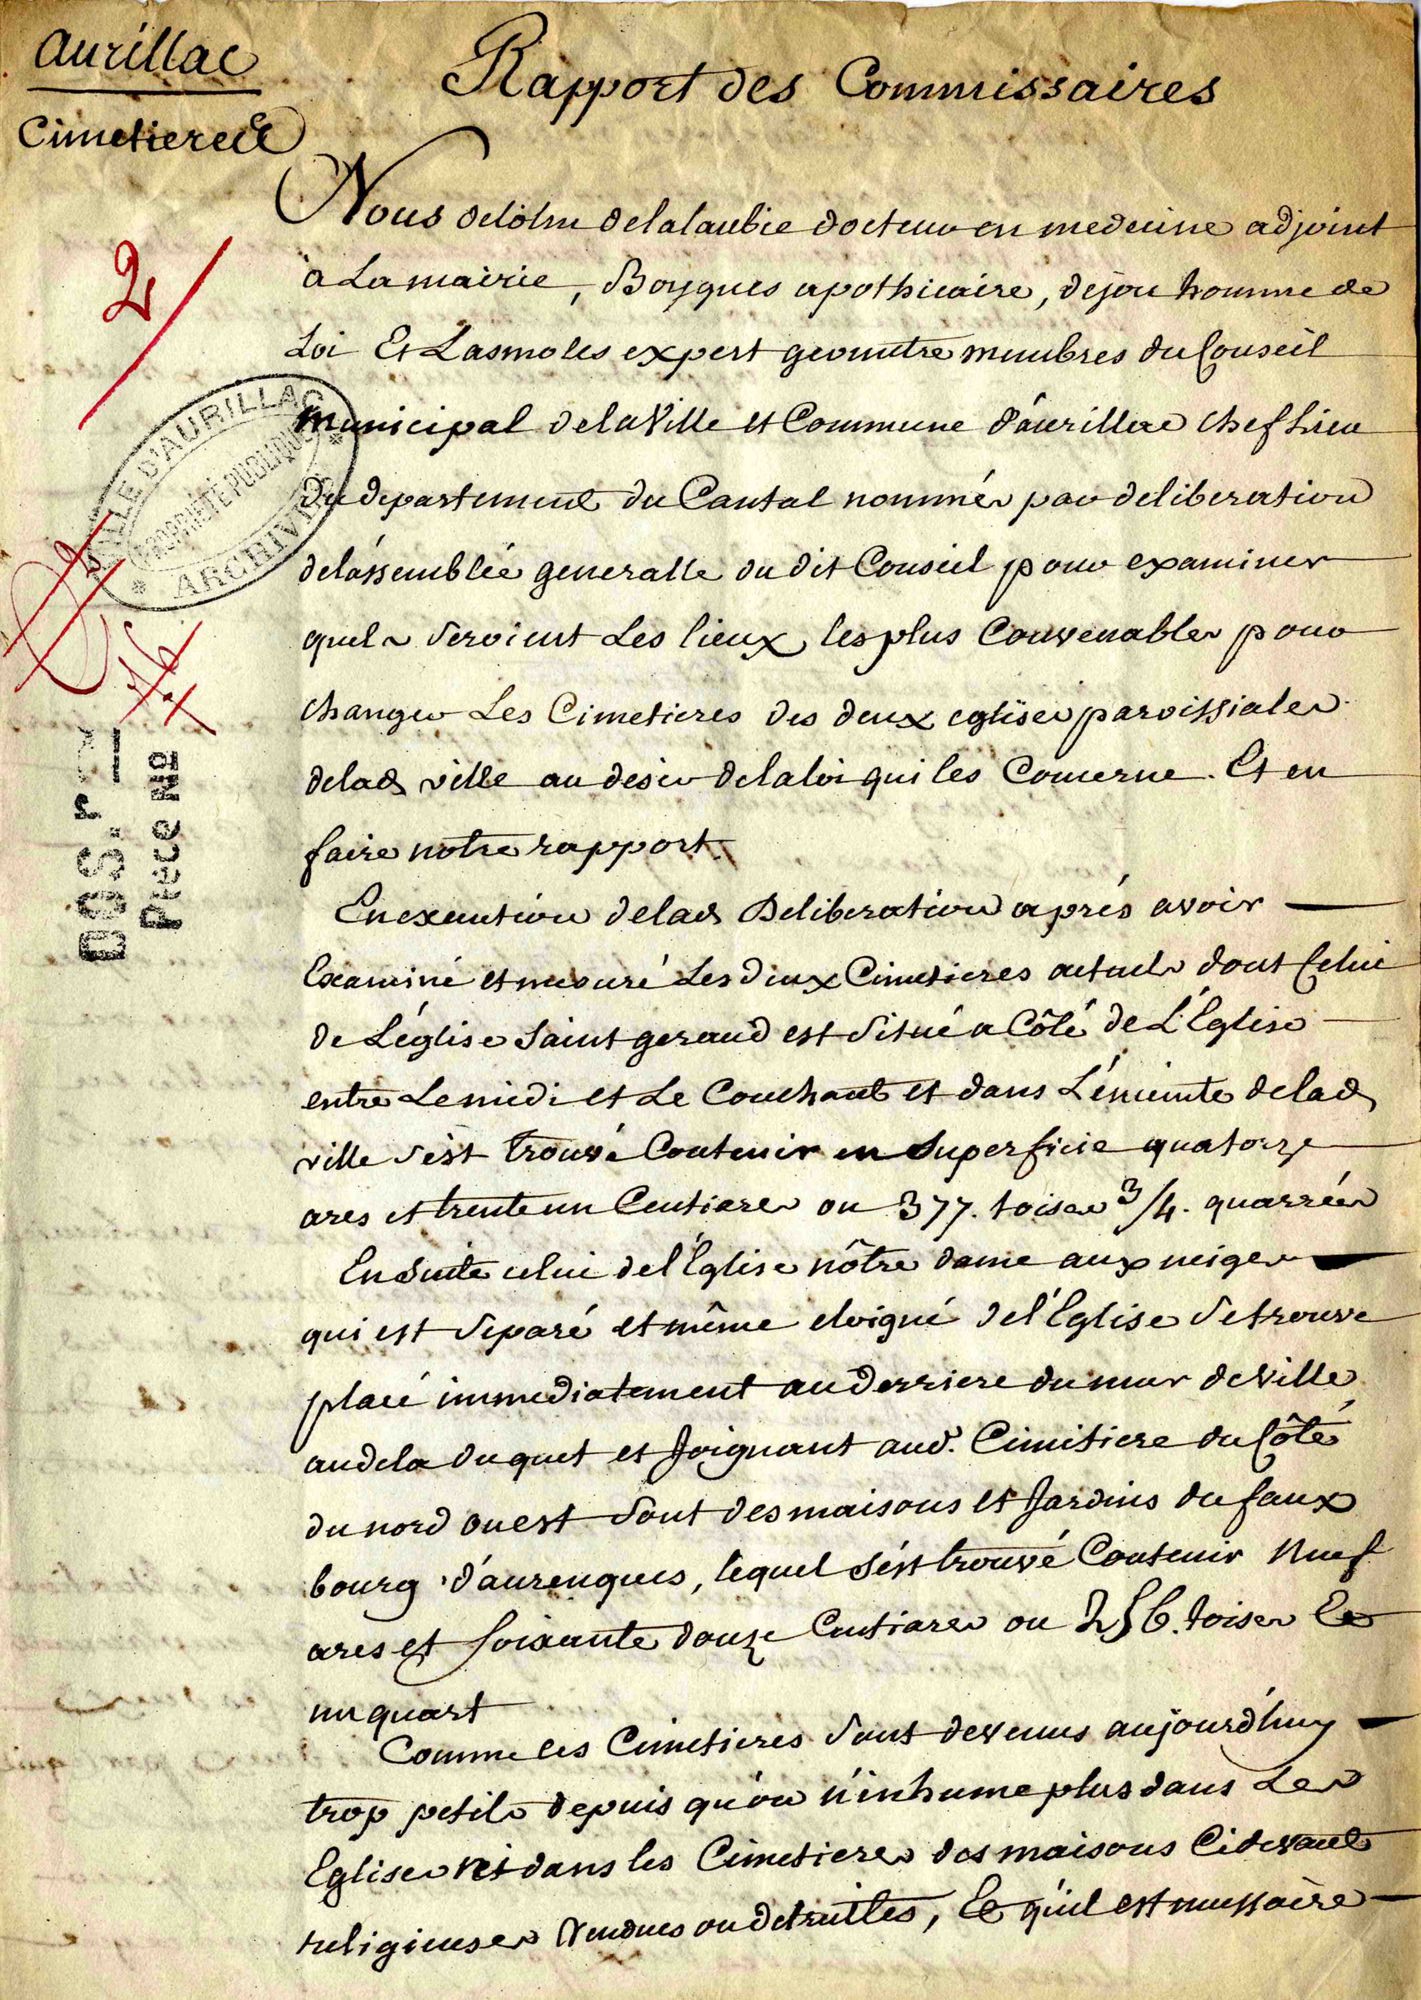 Aurillac
Cimetiere
Rapport des Commissaires
Nous delolm delalaubie docteur en medecine adjoint
a La mairie, Boygues apothicaire, dejou homme de
Loi Et Lasmoles expert geometre membres du Conseil
municipal de la Ville et Commune d'aurillac chef Lieu
du departement du Cantal nommés par deliberation
de lassemblée generalle du dit Conseil pour examiner
quels seroient Les lieux les plus Convenables pour
changer Les Cimetieres des deux eglises paroissiales
de lad. ville au desir de la loi qui les Concerne. Et en
faire notre rapport.
En execution de lad. Deliberation aprés avoir
Examiné et mesuré Les deux Cimetieres actuels dont Celui
de L'église Saint geraud est situé a Côté de L'Eglise
entre Le midi et Le Couchant et dans L'enceinte de lad.
ville s'est trouvé Contenir en Superficie quatorze
ares et trente un Centiares ou 377. toises 3/4. quarrées
En Suite celui de l'Eglise nôtre dame aux neiges
qui est separé et même eloigné de l'Eglise se trouve
placé immediatement au derriere du mur de ville
au dela du guet et Joignant aud. Cimitiere du Côté
du nord ouest sont des maisons et Jardins du faux
bourg d'aurenques, lequel s'est trouvé Contenir Neuf
ares et soixante douze Centiares ou 256. toises Et
un quart
Comme ces Cimetieres sont devenus aujourd'huy
trop petits depuis qu'on n'inhume plus dans Les
Eglises ni dans les Cimetieres des maisons Cidevant
religieuses Vendues ou detruittes, Et qu'il est nessaire
2
VILLE D'AURILLAC
PROPRIÉTÉ PUBLIQUE
* ARCHIVES *
DOS.r
Piece No